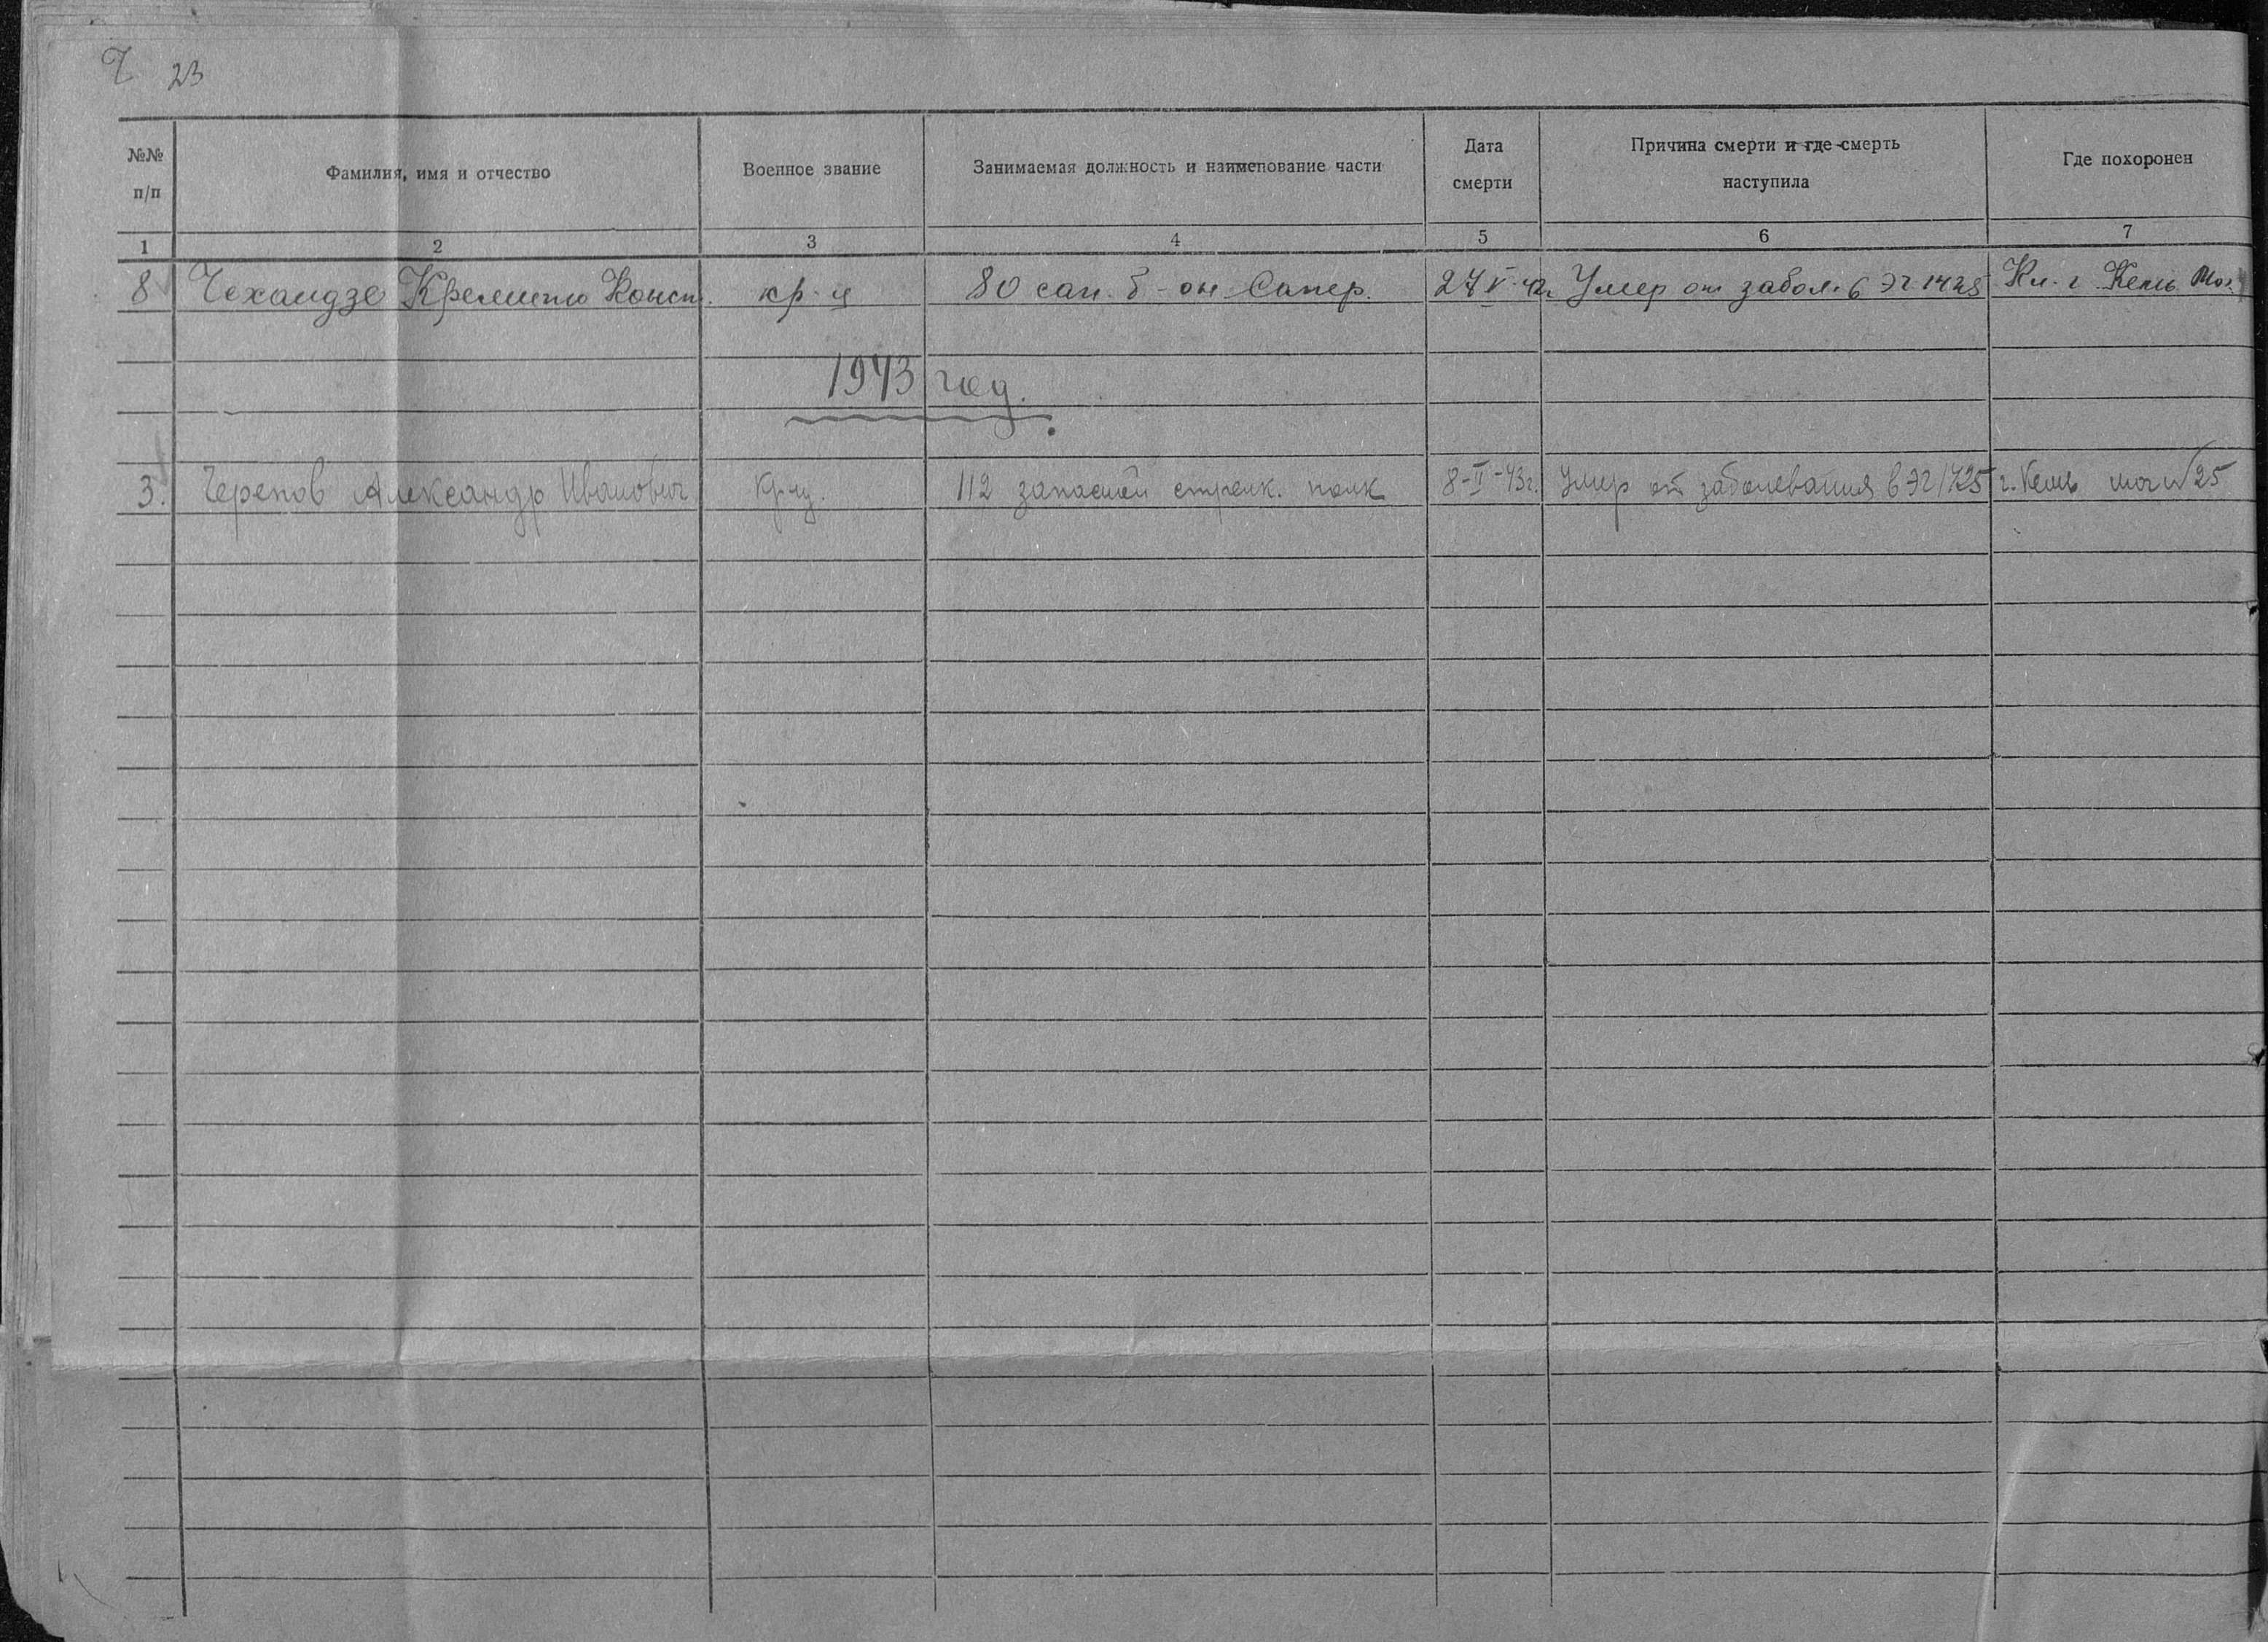 Ч 23
№№ п/п | Фамилия, имя и отчество | Военное звание | Занимаемая должность и наименование части | Дата смерти | Причина смерти и где смерть наступила | Где похоронен
1 | 2 | 3 | 4 | 5 | 6 | 7
8 | Чехаидзе Конст. | кр-ц | 80 сап. б-он Сапер. | 27 V 42г | Умер от забол. в ЭГ 1425 | Кл. г. Кемь
1943 год.
3. | Черепов Александр Иванович | кр-ц. | 112 запасной стрелк. полк | 8-II-43г. | Умер от заболевания в ЭГ 1425 | г. Кемь мог № 25